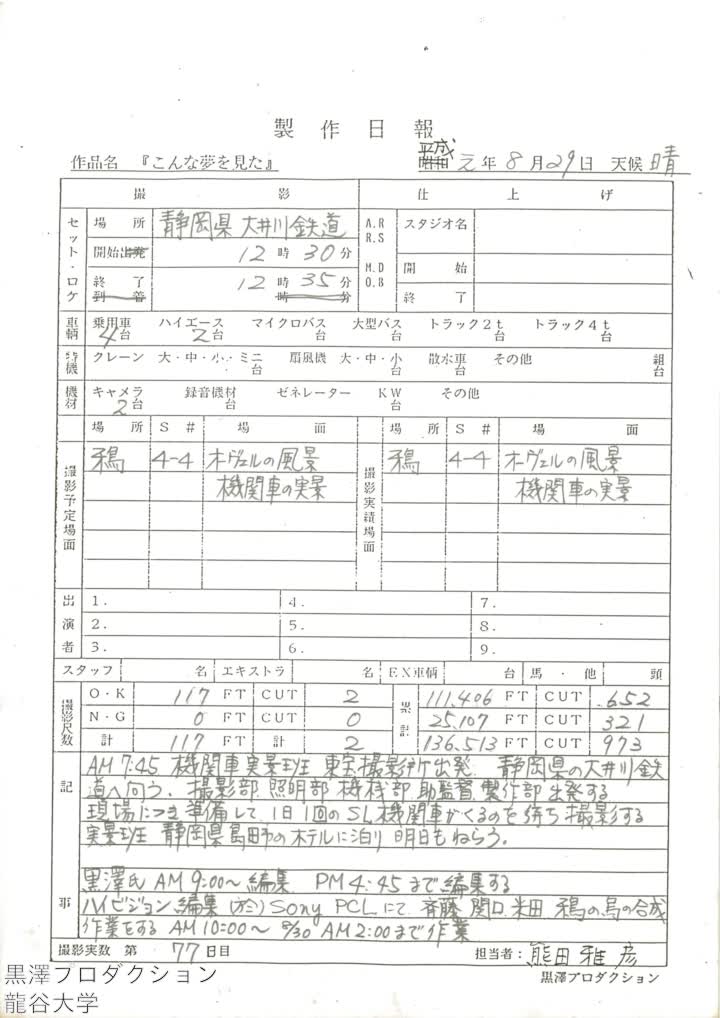 製作日報
作品名 『こんな夢を見た』 平成 元年 8月29日 天候 晴
撮影 仕上げ
セット・ロケ 場所 静岡県 大井川鉄道 A.R R.S スタジオ名
開始出発 12時30分 M.D O.B 開始
終了 12時35分 終了
到着 時 分
車輛 乗用車 4台 ハイエース 2台 マイクロバス 台 大型バス 台 トラック2t 台 トラック4t 台
特機 クレーン 大・中・小・ミニ 台 扇風機 大・中・小 台 散水車 台 その他 組 台
機材 キャメラ 2台 録音機材 台 ゼネレーター KW 台 その他
場所 S# 場面 場所 S# 場面
撮影予定場面 鴉 4-4 オーヴェルの風景 撮影実績場面 鴉 4-4 オーヴェルの風景
機関車の実景 機関車の実景
出演者 1. 4. 7.
2. 5. 8.
3. 6. 9.
スタッフ 名 エキストラ 名 EX車輌 台 馬・他 頭
撮影尺数 O・K 117 FT CUT 2 累計 111.406 FT CUT 652
N・G 0 FT CUT 0 25.107 FT CUT 321
計 117 FT 計 2 136.513 FT CUT 973
記事 AM 7:45 機関車実景班 東宝撮影所出発 静岡県の大井川鉄
道へ向う。撮影部 照明部 機械部 助監督 製作部 出発する
現場につき準備して、1日1回のSL機関車がくるのを待ち撮影する
実景班 静岡県島田市のホテルに泊り 明日もねらう。
黒澤氏 AM 9:00〜 編集 PM 4:45まで編集する
ハイビジョン編集 Sony PCLにて 斉藤 関口 米田 鴉の鳥の合成
作業をする AM 10:00〜 8/30 AM 2:00まで作業
撮影実数 第 77日目 担当者: 熊田雅彦
黒澤プロダクション
黒澤プロダクション
龍谷大学